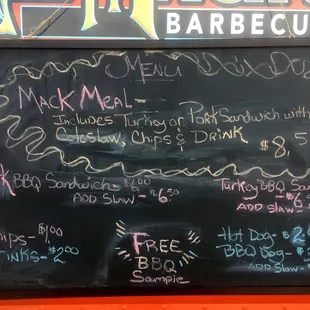 BARBECU
MENU
MACK MEAL-
INCLUDES TURKEY OR PORK SANDWICH WITH
COLESLAW, CHIPS & DRINK
$8,5
K BBQ SANDWICH- $6.00
ADD SLAW- $6.50
TURKEY BBQ SA
ADD SLAW- $6
HIPS- $1.00
INKS- $2.00
FREE
BBQ
SAMPLE
HOT DOG- $2
BBQ DOG-
ADD SLAW-